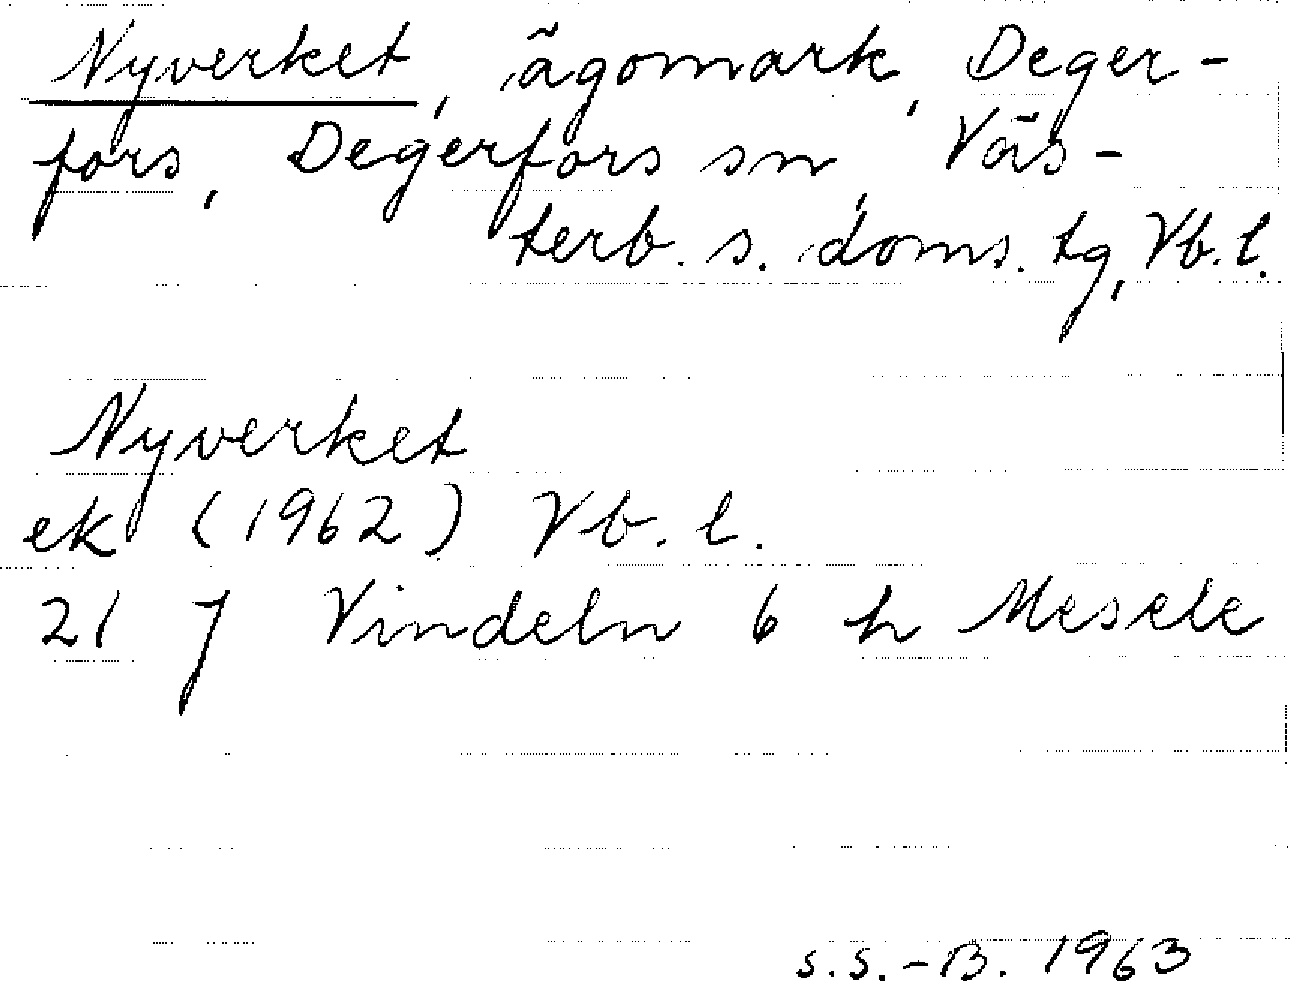 Nyverket, ägomark, Deger-
fors, Degerfors sn, Väs-
terb. s. doms. tg, Vb. l.
Nyverket
ek (1962) Vb. l.
21 J Vindeln 6 h Mesele
S.S.-B. 1963